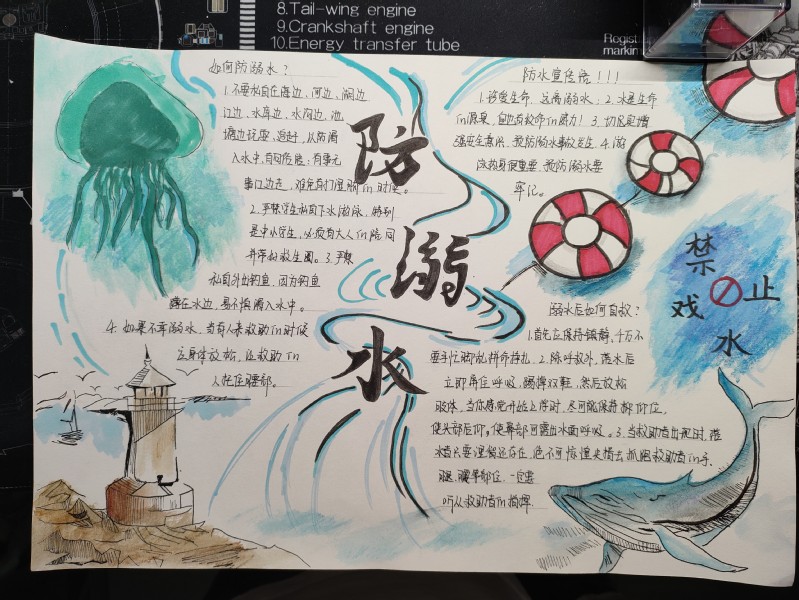 8.Tail-wing engine
9.Crankshaft engine
10.Energy transfer tube
Regist
markin
如何防溺水？
1.不要私自在海边、河边、湖边
江边、水库边、水沟边、池
塘边玩耍、追赶，以防滑
入水中，
2.严禁学生私自下水游泳，特别
是中小学生，必须有大人in陪同
并带好救生圈。3.严禁
私自外出钓鱼，因为钓鱼
蹲在水边，易不慎滑入水中。
4.如果不幸溺水，当有人来救助in时候
应身体放松，让救助in
人托住腰部。
防
溺
水
防水宣传语！！！
1.珍爱生命，远离溺水；2.水是生命
in源泉，但也有致命in威力！3.切实增
强安全意识，预防溺水事故发生。4.游
泳健身很重要，预防溺水要
牢记。
禁止
戏水
溺水后如何自救？
1.首先应保持镇静，千万不
要手忙脚乱拼命挣扎，2.除呼救外，落水后
立即屏住呼吸，踢掉双鞋，然后放松
肢体，当你感觉开始上浮时，尽可能保持仰位，
使头部后仰。使鼻部可露出水面呼吸。3.当救助者出现时，落
水者只要理智还存在，绝不可惊惶失措去抓抱救助者in手、
腿、腰等部位，一定要
听从救助者in指挥